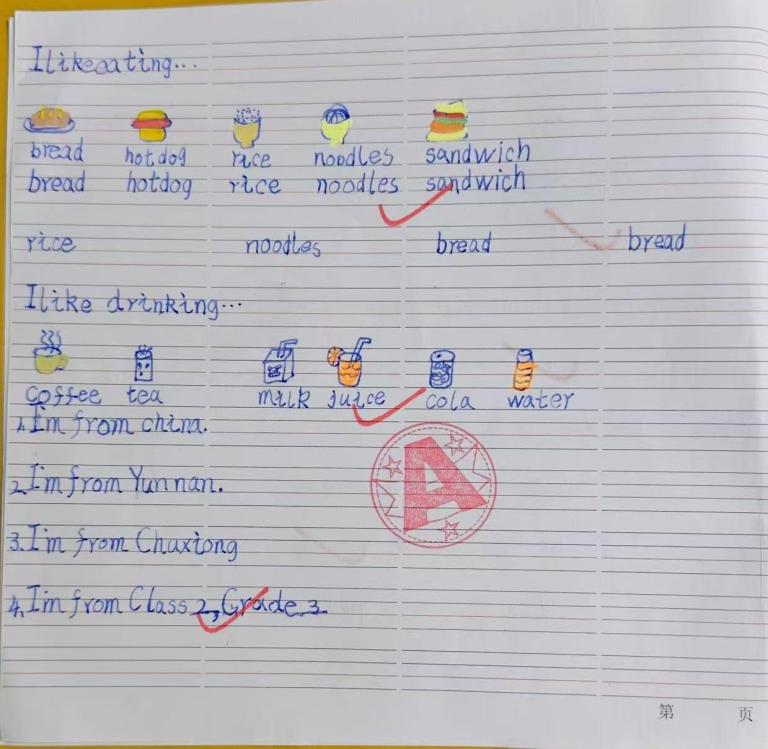 I like eating...
bread hotdog rice noodles sandwich
bread hotdog rice noodles sandwich
rice noodles bread bread
I like drinking...
coffee tea milk juice cola water
1. I'm from china.
2. I'm from Yunnan.
A
3. I'm from Chuxiong
4. I'm from Class 2, Grade 3
第 页